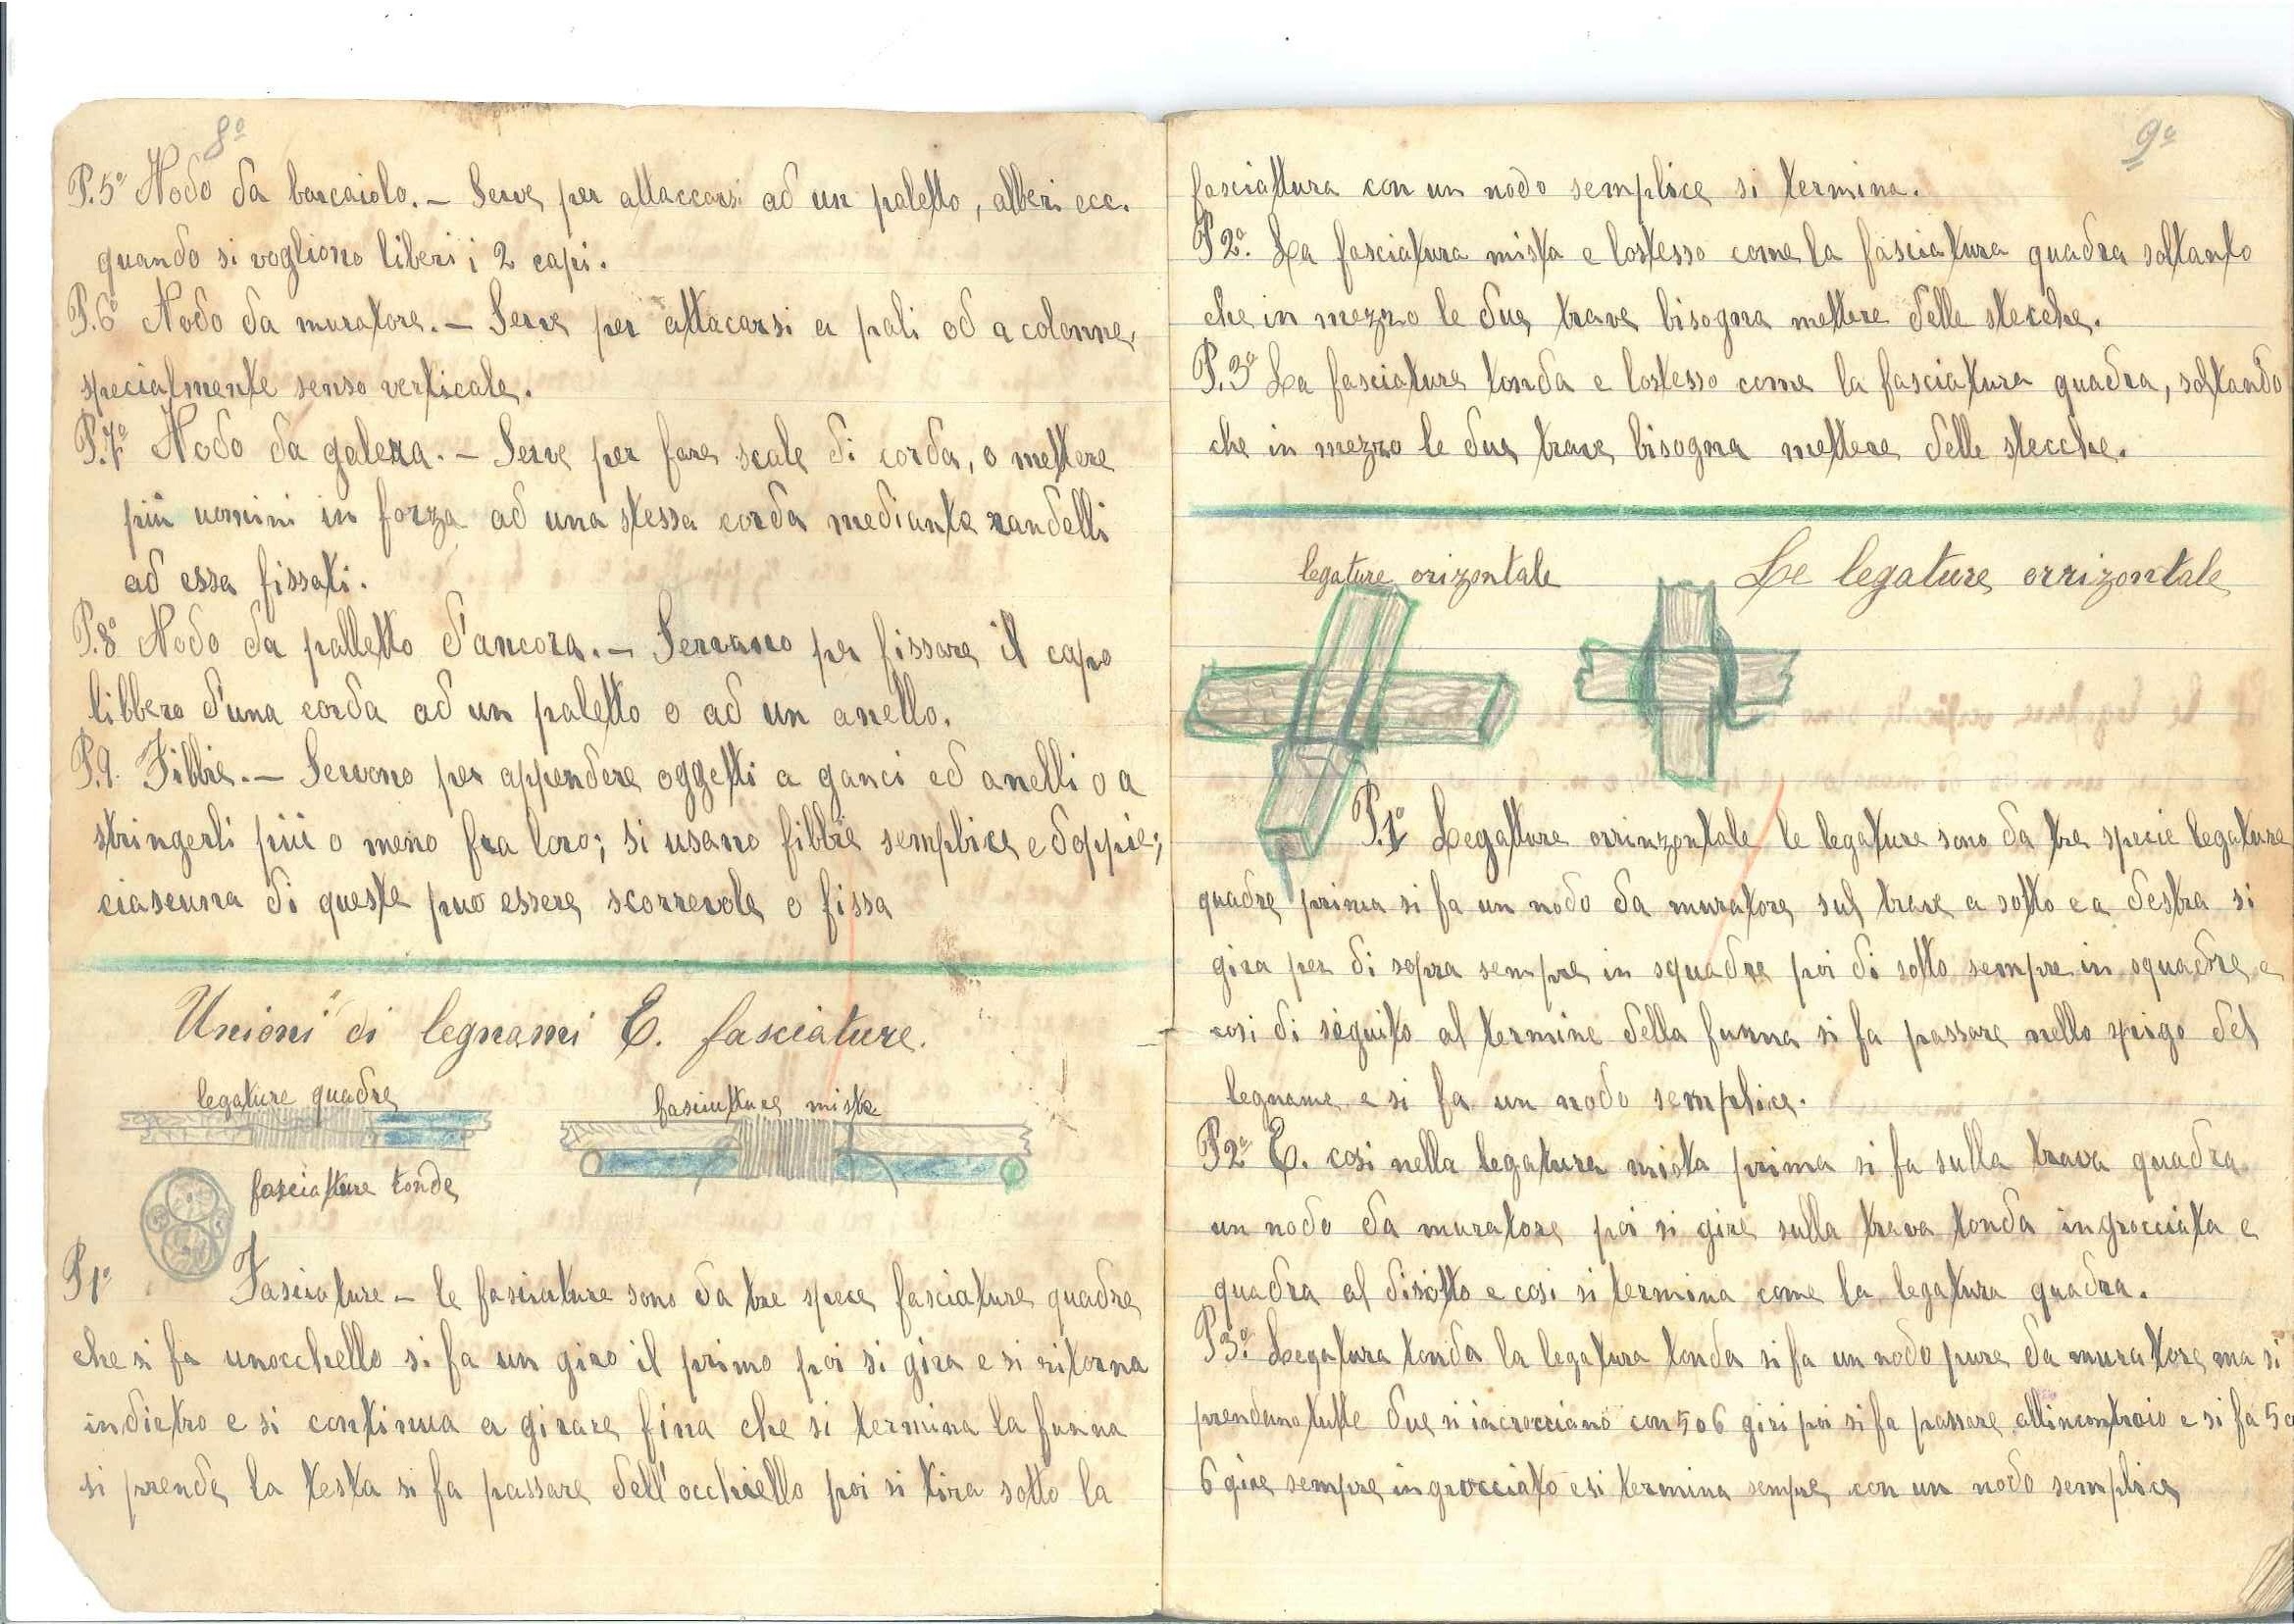 8º
P.5º Nodo da barcaiolo. - Serve per attaccarsi ad un paletto, alberi ecc.
quando si vogliono liberi i 2 capi.
P.6º Nodo da muratore. - Serve per attacarsi a pali od a colonne,
specialmente senso verticale.
P.7º Nodo da galera. - Serve per fare scale di corda, o mettere
più uomini in forza ad una stessa corda mediante randelli
ad essa fissati.
P.8º Nodo da palletto d'ancora. - Servano per fissare il capo
libbero d'una corda ad un paletto o ad un anello.
P.9. Fibbie. - Servono per appendere oggetti a ganci ed anelli o a
stringerli più o meno fra loro; si usano fibbie semplice e doppie;
ciascuna di queste puo essere scorrevole o fissa
Unioni di legnami E. fasciature.
legature quadre
fasciature miste
fasciature tonde
P1º Fasciature - le fasciature sono da tre spece fasciature quadre
che si fa unocchello si fa un giro il primo poi si gira e si ritorna
indietro e si continua a girare fina che si termina la funna
si prende la testa si fa passare dell'occhiello poi si tira sotto la
9º
fasciattura con un nodo semplice si termina.
P2º. La fasciatura mista e lostesso come la fasciatura quadra soltanto
che in mezzo le due trave bisogna mettere delle stecche.
P.3º La fasciatura tonda e lostesso come la fasciatura quadra, soltando
che in mezzo le due trave bisogna mettere delle stecche.
legature orizontale
Le legature orrizontale
P.1º Legatture orrinzontale le legature sono da tre specie legature
quadre prima si fa un nodo da muratore sul trave a sotto e a destra si
gira per di sopra sempre in squadre poi di sotto sempre in squadre e
cosi di seguito al termine della funna si fa passare nello spigo del
legname e si fa un nodo semplice.
P2º E. cosi nella legatura mista prima si fa sulla trava quadra
un nodo da muratore poi si gire sulla trava tonda ingrocciata e
quadra al disotto e cosi si termina come la legatura quadra.
P3º. Legatura tonda la legatura tonda si fa un nodo pure da muratore ma si
prendano tutte due si incrocciano con 5 o 6 giri poi si fa passare allincontraio e si fa 5 o
6 gire sempre ingrocciato e si termina sempre con un nodo semplice